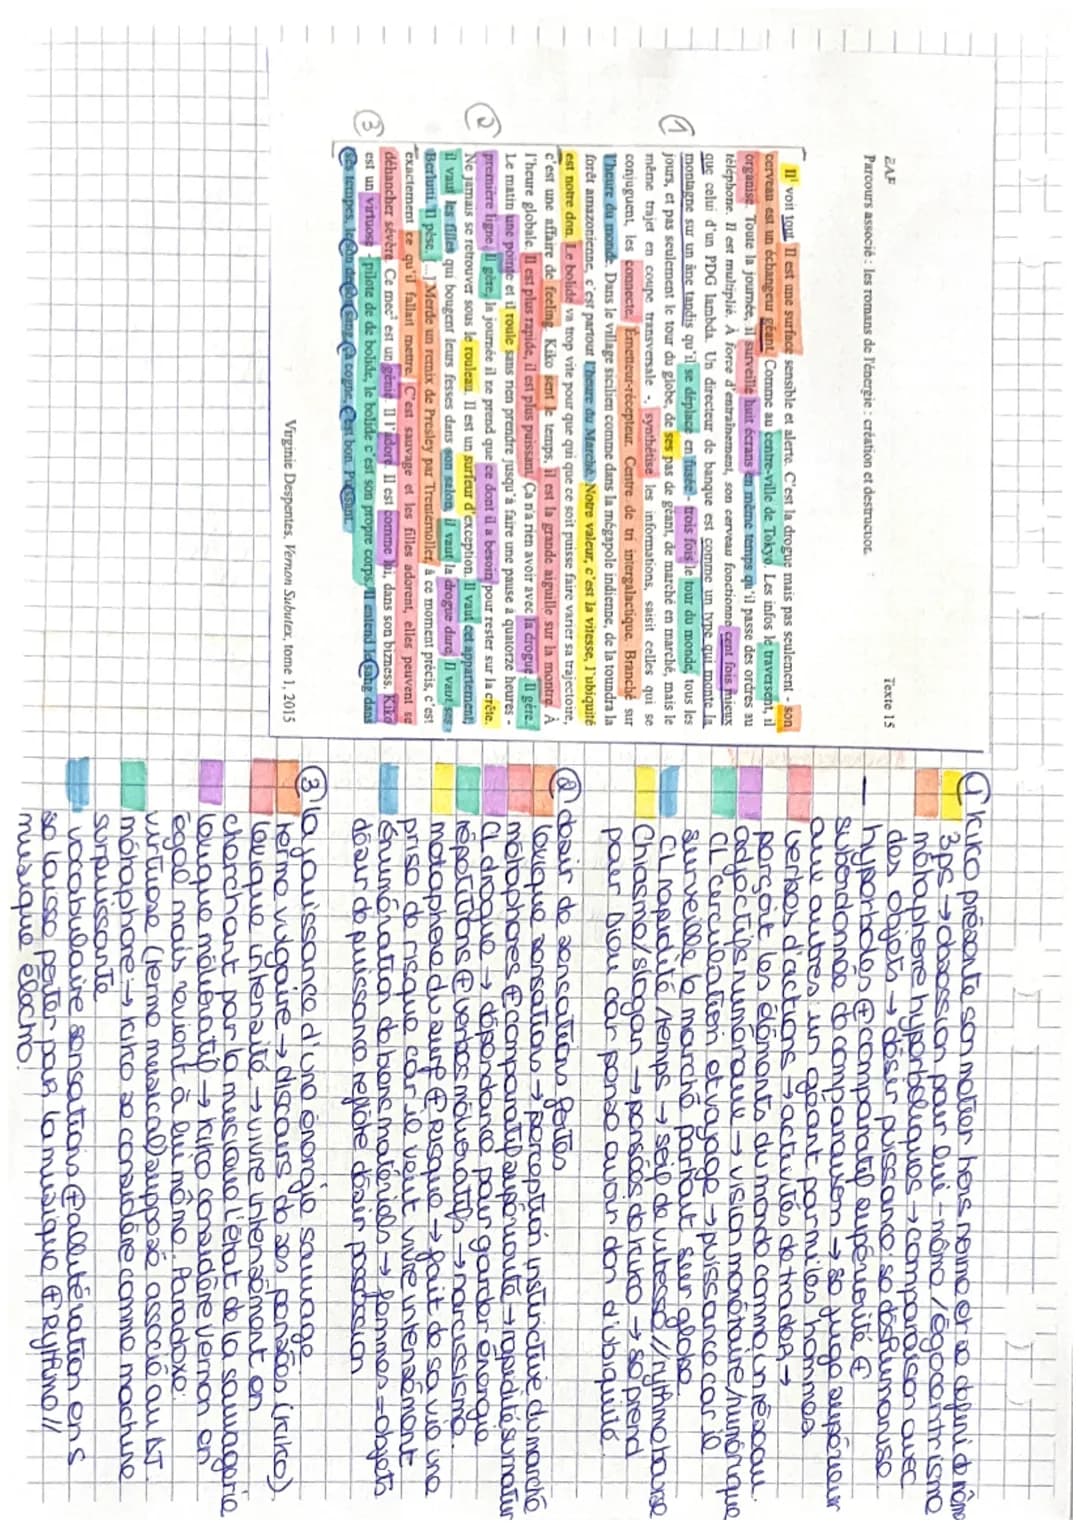 2AF
Texte 15
Parcours associé : les romans de l'énergie : création et destruction.
Il¹ voit tout. Il est une surface sensible et alerte. C'est la drogue mais pas seulement - son
cerveau est un échangeur géant. Comme au centre-ville de Tokyo. Les infos le traversent, il
organise. Toute la journée, il surveille huit écrans en même temps qu'il passe des ordres au
téléphone. Il est multiplié. À force d'entraînement, son cerveau fonctionne cent fois mieux
que celui d'un PDG lambda. Un directeur de banque est comme un type qui monte la
montagne sur un âne tandis qu'il se déplace en fusée - trois fois le tour du monde, tous les
jours, et pas seulement le tour du globe, de ses pas de géant, de marché en marché, mais le
même trajet en coupe transversale -, synthétise les informations, saisit celles qui se
conjuguent, les connecte. Émetteur-récepteur. Centre de tri intergalactique. Branché sur
l'heure du monde. Dans le village sicilien comme dans la mégapole indienne, de la toundra la
forêt amazonienne, c'est partout l'heure du Marché. Notre valeur, c'est la vitesse, l'ubiquité
est notre don. Le bolide va trop vite pour que qui que ce soit puisse faire varier sa trajectoire,
c'est une affaire de feeling. Kiko sent le temps, il est la grande aiguille sur la montre. À
l'heure globale. Il est plus rapide, il est plus puissant. Ça n'a rien avoir avec la drogue. Il gère.
Le matin une pointe et il roule sans rien prendre jusqu'à faire une pause à quatorze heures -
première ligne. Il gère, la journée il ne prend que ce dont il a besoin pour rester sur la crête.
Ne jamais se retrouver sous le rouleau. Il est un surfeur d'exception. Il vaut cet appartement,
il vaut les filles qui bougent leurs fesses dans son salon, il vaut la drogue dure. Il vaut ses
Berluti. Il pèse. [...] Merde un remix de Presley par Trentemoller, à ce moment précis, c'est
exactement ce qu'il fallait mettre. C'est sauvage et les filles adorent, elles peuvent se
déhancher sévère. Ce mec² est un génie. Il l'adore. Il est comme lui, dans son bizness. Kiko
est un virtuose - pilote de de bolide, le bolide c'est son propre corps. Il entend le sang dans
ses tempes, le son dans le sang, ça cogne, c'est bon. Puissant.
Virginie Despentes, Vernon Subutex, tome 1, 2015
1
2
3
① Kiko présente son métier hors norme et se défini de même
3ps → obsession pour lui-même / égocentrisme
métaphore hyperboliques → comparaison avec
des objets → désir puissance, se déshumanise
hyperboles ⊕ comparatif supériorité ⊕
subordonnée de comparaison → se juge supérieur
aux autres, un géant parmi les hommes
verbes d'actions → activités de trader →
perçoit les éléments du monde comme un réseau.
adjectifs numéraux → vision monétaire/numérique
CL circulation et voyage → puissance car il
surveille le marché partout sur globe
CL rapidité/temps → soif de vitesse // rythme bourse
Chiasme/slogan → pensées de Kiko → se prend
pour Dieu car pense avoir don d'ubiquité
② désir de sensations fortes
lexique sensations → perception instinctive du marché
métaphores ⊕ comparatif supériorité → rapidité, surnaturel
CL drogue → dépendance pour garder énergie
répétitions ⊕ verbes mélioratifs → narcissisme.
métaphore du surf ⊕ risque → fait de sa vie une
prise de risque car il veut vivre intensément
énumération de biens matériels → femmes = objets
désir de puissance reflète désir possession
③ la jouissance d'une énergie sauvage
terme vulgaire → discours de ses pensées (Kiko)
lexique intensité → vivre intensément en
cherchant par la musique l'état de la sauvagerie
lexique mélioratif → Kiko considère Vernon en
égal mais revient à lui même. Paradoxe.
virtuose (terme musical) supposé associé au
métaphore → Kiko se considère comme machine
surpuissante
vocabulaire sensations ⊕ allitération en s
se laisse porter par la musique ⊕ rythme //
musique électro.